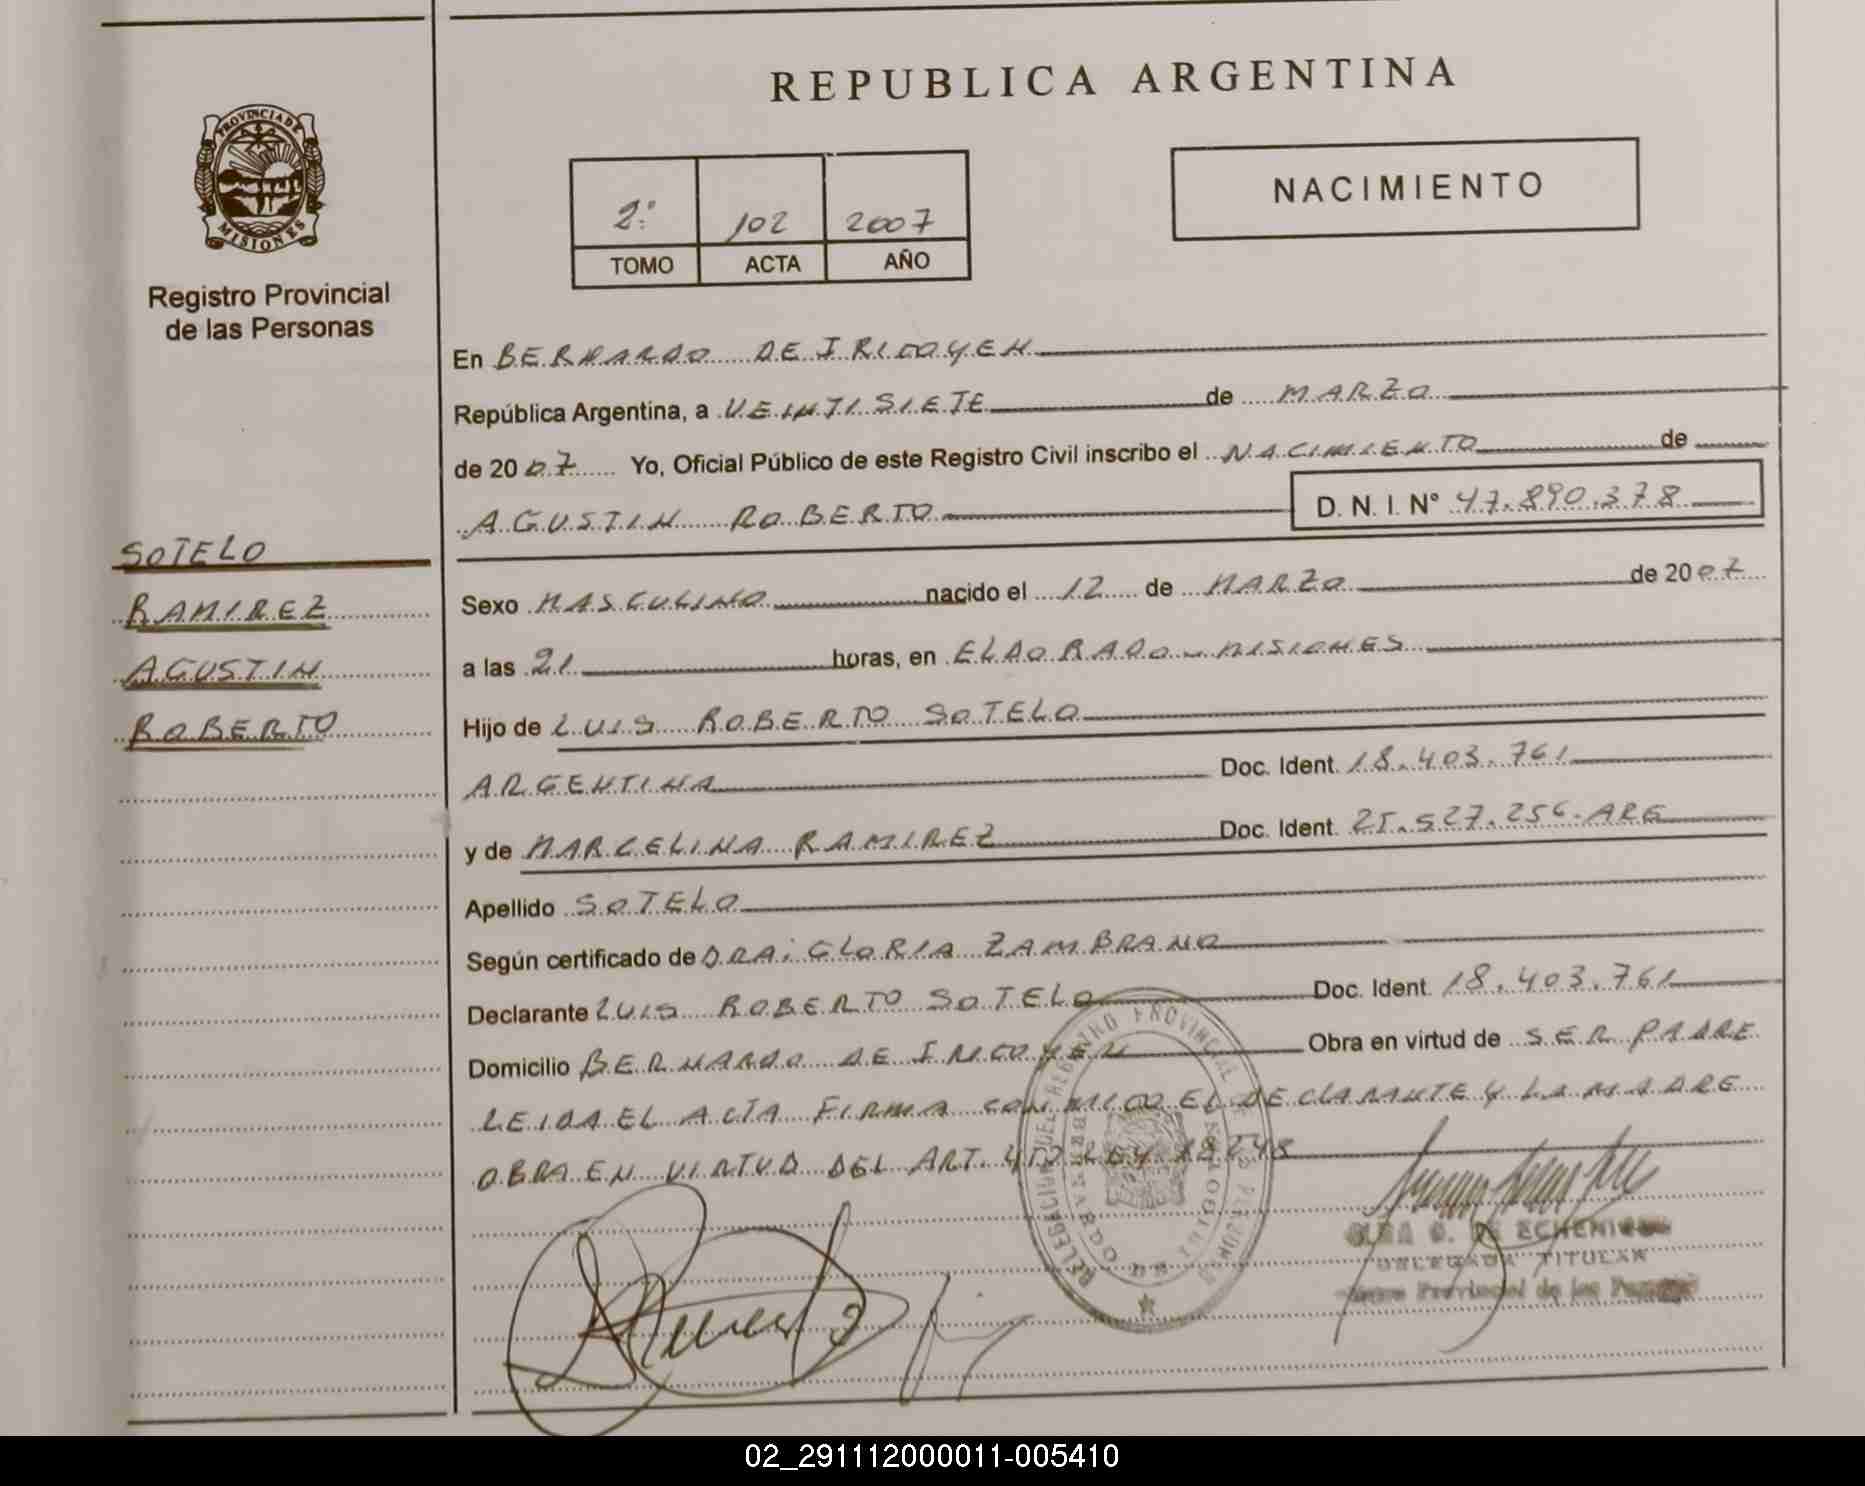 REPUBLICA ARGENTINA
PROVINCIA DE MISIONES
Registro Provincial
de las Personas
2º 102 2007
TOMO ACTA AÑO
NACIMIENTO
En BERNARDO DE IRIGOYEN
República Argentina, a VEINTISIETE de MARZO
de 2007 Yo, Oficial Público de este Registro Civil inscribo el NACIMIENTO de
AGUSTIN ROBERTO D. N. I. N° 47.890.378
SOTELO
RAMIREZ
AGUSTIN
ROBERTO
Sexo MASCULINO nacido el 12 de MARZO de 2007
a las 21 horas, en ELDORADO - MISIONES
Hijo de LUIS ROBERTO SOTELO
ARGENTINA Doc. Ident. 18.403.761
y de MARCELINA RAMIREZ Doc. Ident. 25.527.256-ARG
Apellido SOTELO
Según certificado de DRA: GLORIA ZAMBRANO
Declarante LUIS ROBERTO SOTELO Doc. Ident. 18.403.761
Domicilio BERNARDO DE IRIGOYEN Obra en virtud de SER PADRE
LEIDA EL ACTA FIRMA CONMIGO EL DECLARANTE Y LA MADRE
OBRA EN VIRTUD DEL ART. LEY 18248
DE ECHENIQUE
DELEGADA TITULAR
Provincial de las Personas
02_291112000011-005410